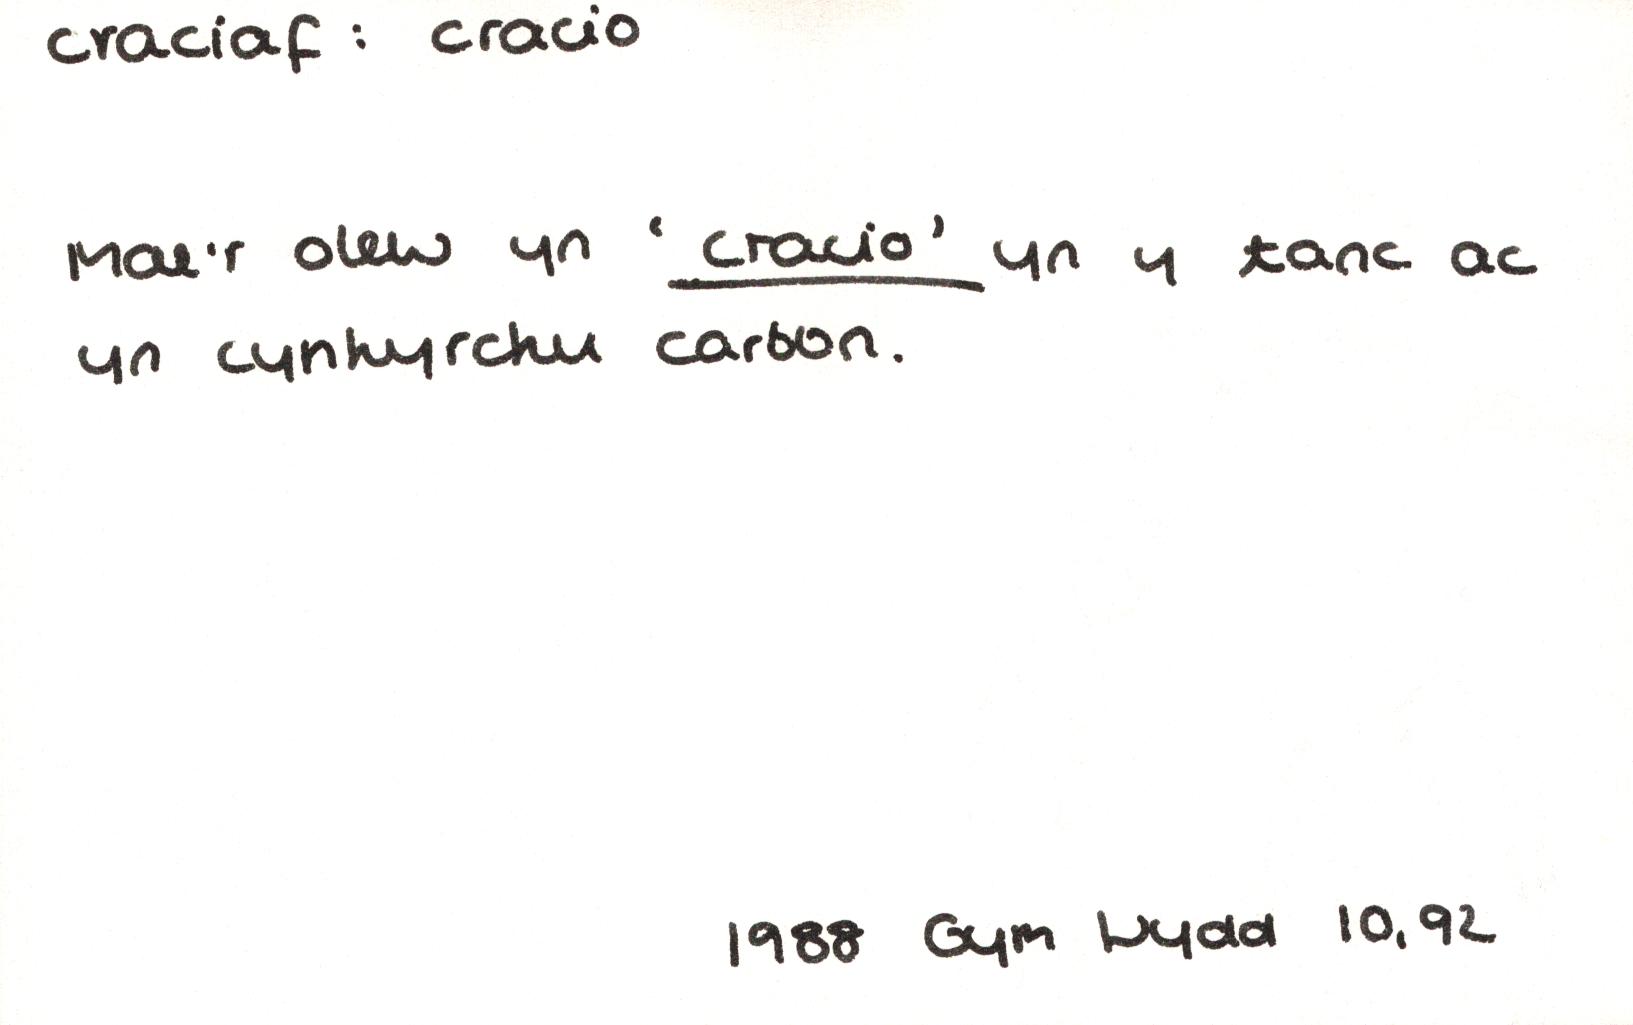 craciaf: cracio
Mae'r olew yn 'cracio' yn y tanc ac
yn cynhyrchu carbon.
1988 Gym Wydd 10,92